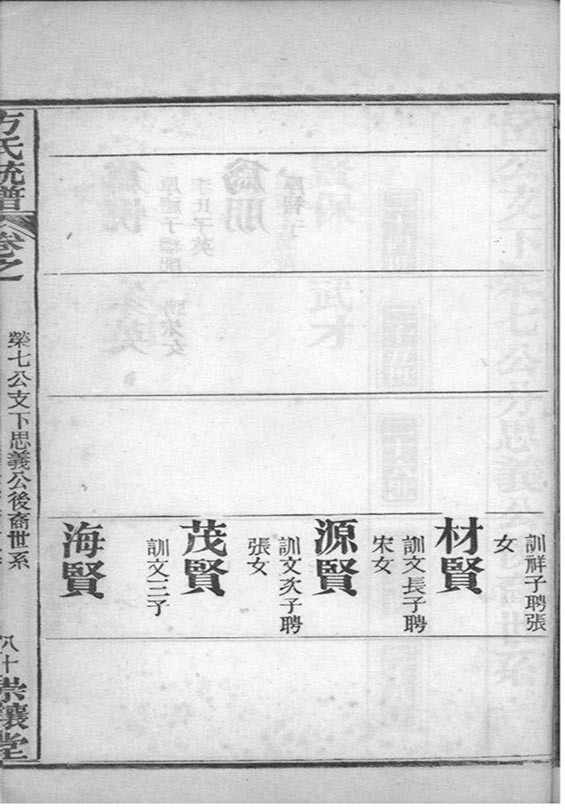 訓祥子聘張
女
材賢
訓文長子聘
宋女
源賢
訓文次子聘
張女
茂賢
訓文三子
海賢
方氏統譜
卷之一
榮七公支下思義公後裔世系
八十
崇讓堂